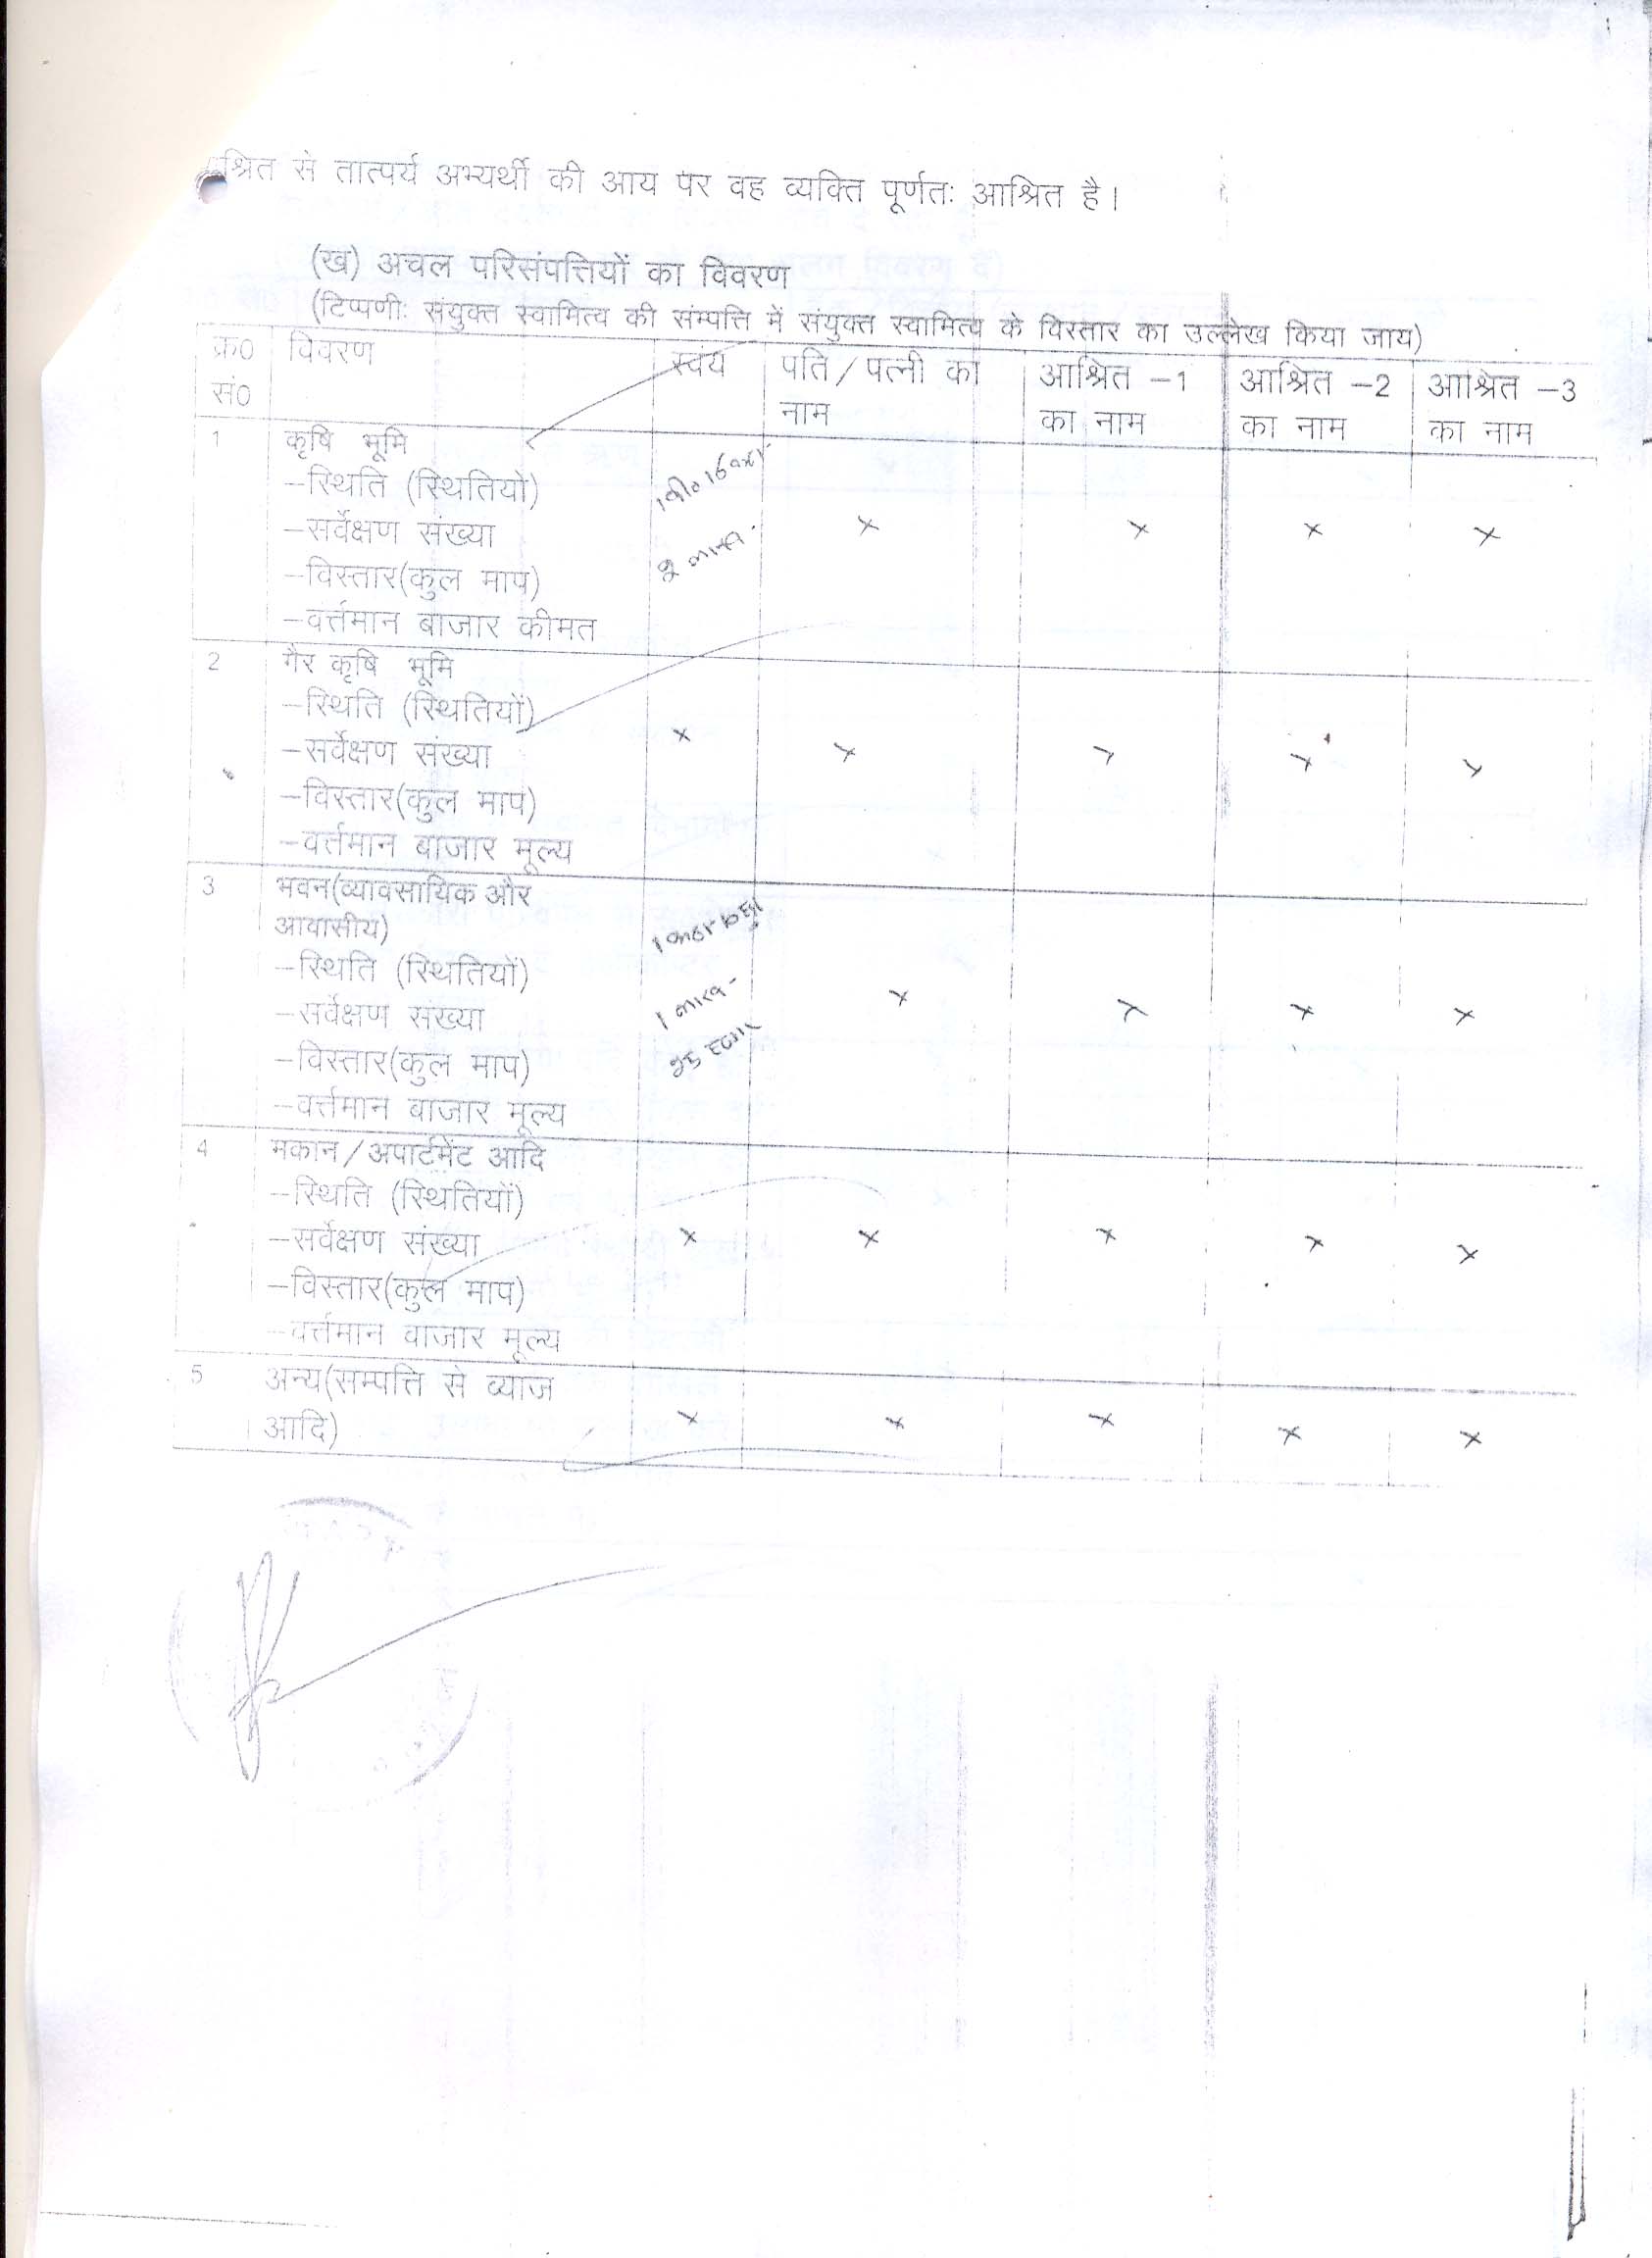 श्रित से तात्पर्य अभ्यर्थी की आय पर वह व्यक्ति पूर्णतः आश्रित है।
(ख) अचल परिसंपत्तियों का विवरण
(टिप्पणीः संयुक्त स्वामित्व की संम्पत्ति में संयुक्त स्वामित्व के विस्तार का उल्लेख किया जाय)
क्र0 सं0 विवरण स्वंय पति/पत्नी का नाम आश्रित –1 का नाम आश्रित –2 का नाम आश्रित –3 का नाम
1 कृषि भूमि
–स्थिति (स्थितियों)
–सर्वेक्षण संख्या × × × ×
–विस्तार(कुल माप)
–वर्त्तमान बाजार कीमत
2 गैर कृषि भूमि
–स्थिति (स्थितियों)
–सर्वेक्षण संख्या × × × × ×
–विस्तार(कुल माप)
–वर्त्तमान बाजार मूल्य
3 भवन(व्यावसायिक और
आवासीय)
–स्थिति (स्थितियों)
–सर्वेक्षण संख्या 1 लाख × × × ×
–विस्तार(कुल माप)
–वर्त्तमान बाजार मूल्य
4 मकान/अपार्टमेंट आदि
–स्थिति (स्थितियों)
–सर्वेक्षण संख्या × × × × ×
–विस्तार(कुल माप)
–वर्त्तमान बाजार मूल्य
5 अन्य(सम्पत्ति से ब्याज
आदि) × × × × ×